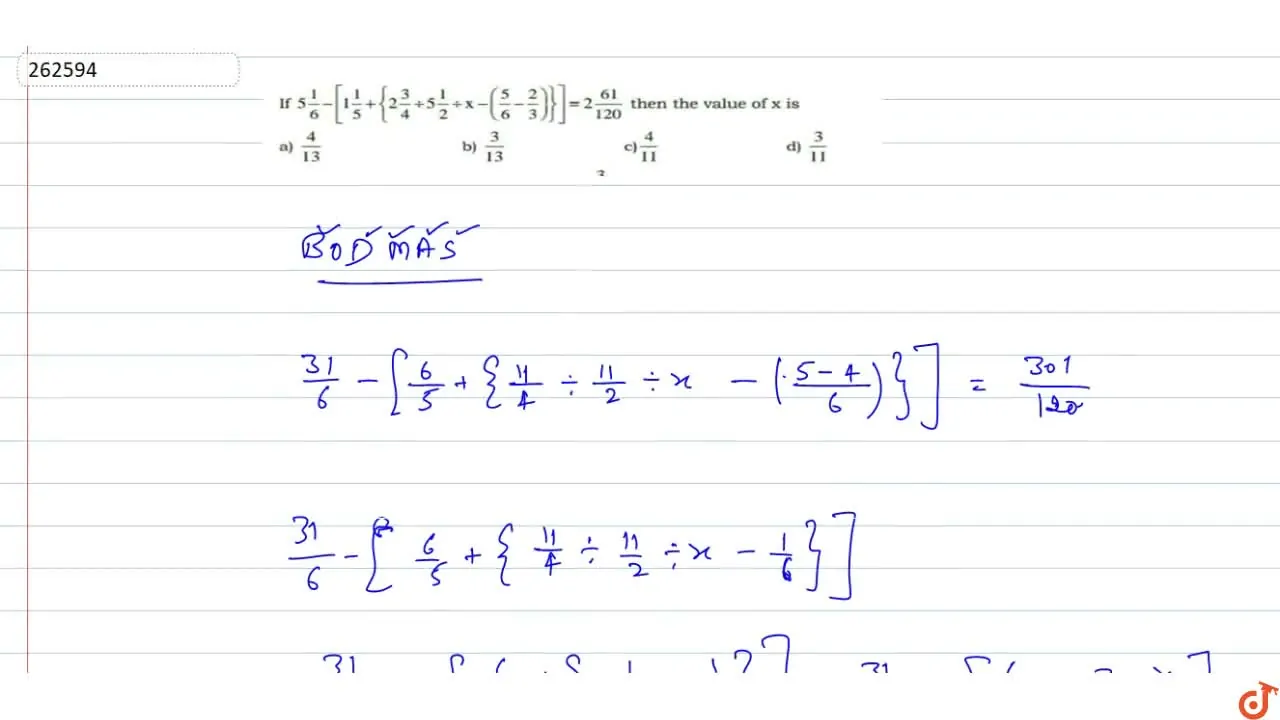 262594
If 5 1/6 − [1 1/5 + {2 3/4 ÷ 5 1/2 ÷ x − (5/6 − 2/3)}] = 2 61/120 then the value of x is
a) 4/13 b) 3/13 c) 4/11 d) 3/11
BODMAS
31/6 − [6/5 + {11/4 ÷ 11/2 ÷ x − (5−4/6)}] = 301/120
31/6 − [6/5 + {11/4 ÷ 11/2 ÷ x − 1/6}]